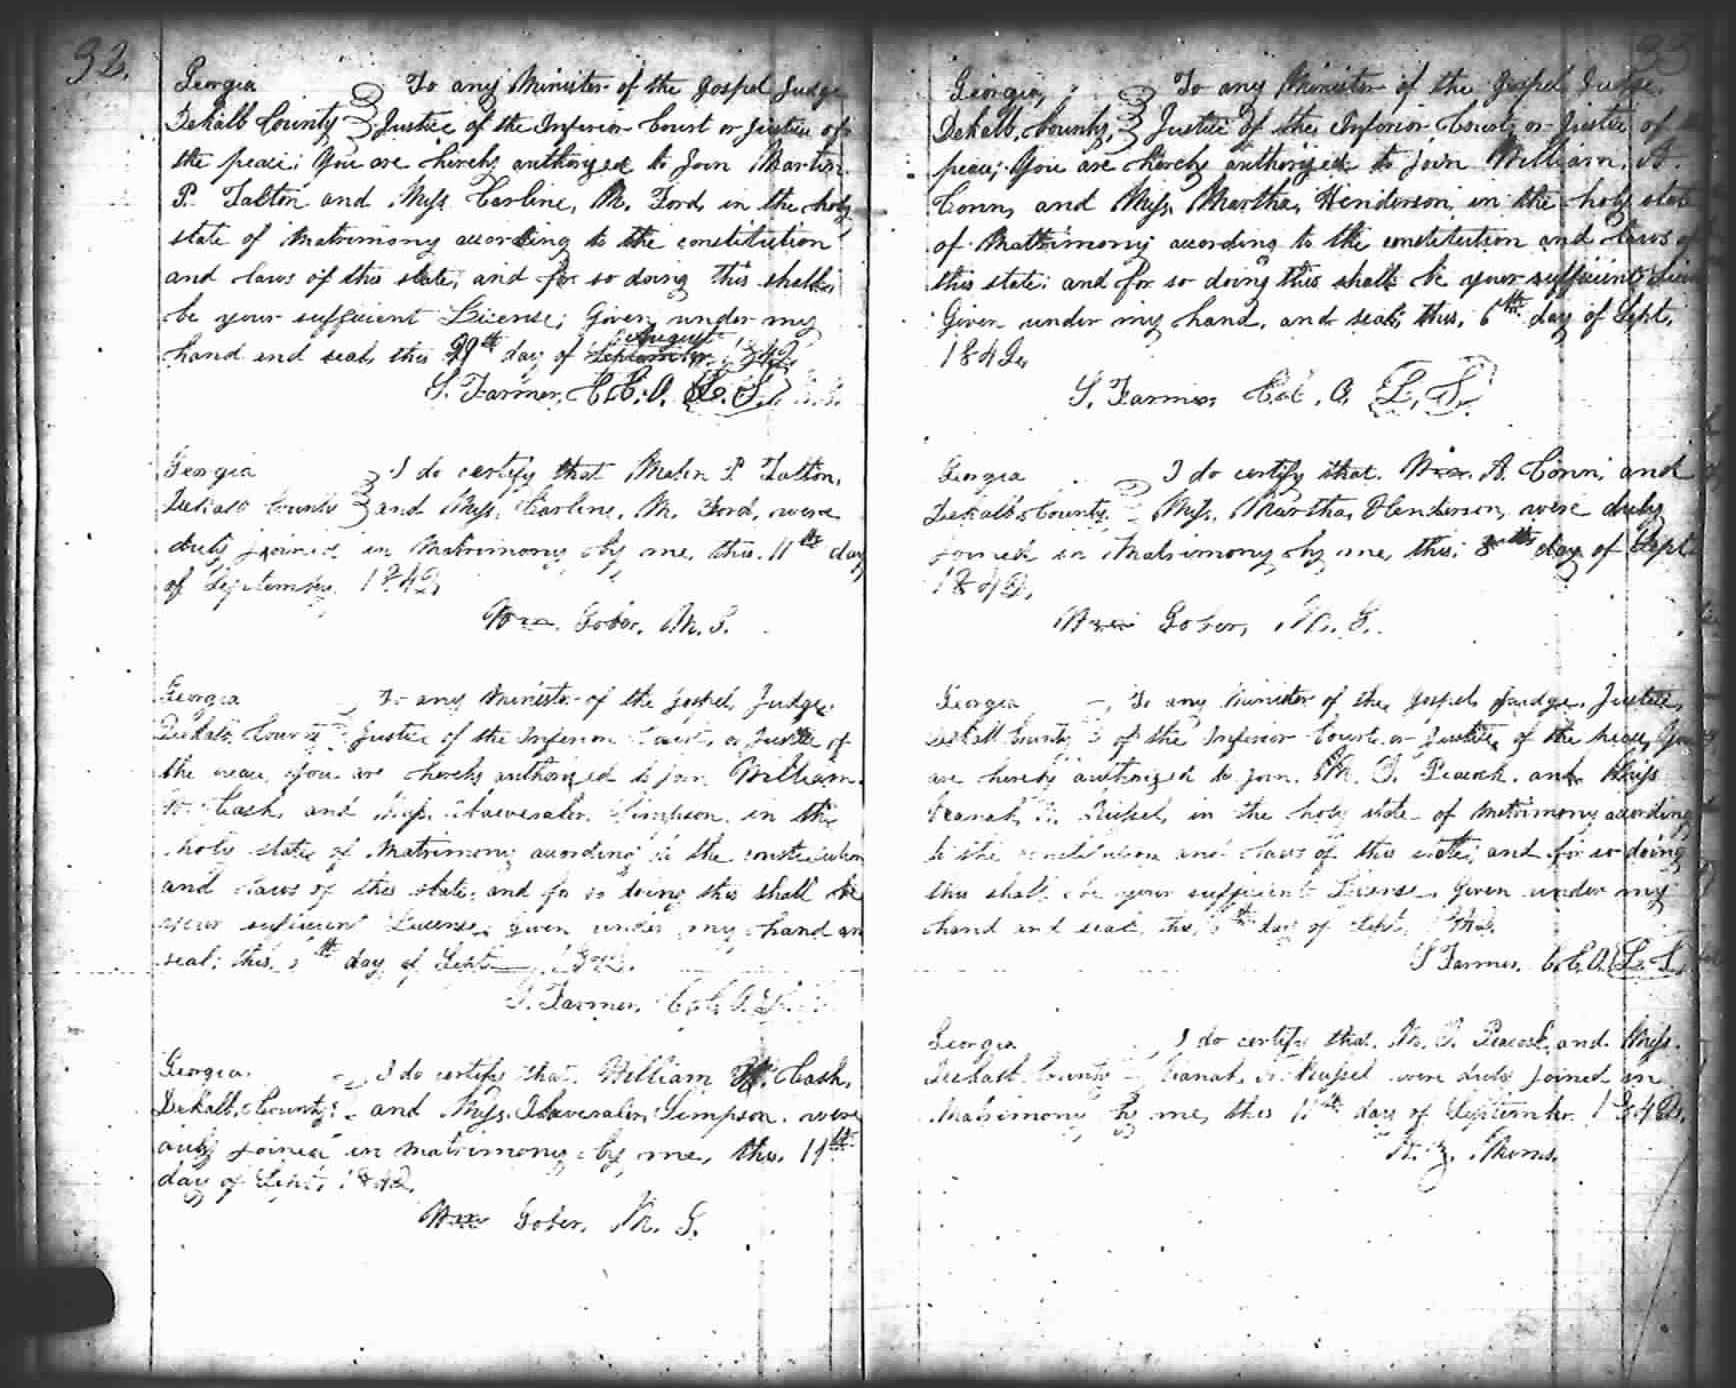 32.
Georgia To any Minister of the Gospel Judge
Dekalb County Justice of the Inferior Court or Justice of
the peace; You are hereby authorized to Join Martin
P. Talton and Miss Carline, M. Ford, in the holy
state of Matrimony according to the constitution
and laws of this state; and for so doing this shall
be your sufficient License; Given under my
hand and seal, this 29th day of August 1842
S. Farmer, C.C.O. L.S.
Georgia I do certify that P. Talton,
Dekalb County and Miss. Carline, M. Ford, were
duly joined in Matrimony by me, this. 11th day
of September 1842
Wm. Gober. M. G.
Georgia To any Minister of the Gospel, Judge
Dekalb County Justice of the Inferior Court, or Justice of
the peace, you are hereby authorized to join William
Cash, and Miss. Simpson in the
holy state of Matrimony according to the constitution
and laws of this state, and for so doing this shall be
your sufficient License. Given under my hand an
seal; this. th day of Sept
S. Farmer,
Georgia. I do certify that. William Cash,
Dekalb, County; and Miss. Simpson. were
duly joined in matrimony by me, this. 11th
day of Sept. 1842,
Wm Gober, M. G.
33
Georgia, To any Minister of the Gospel Judge,
Dekalb, County, Justice of the Inferior Court, or Justice of
peace; You are hereby authorized to join William. A.
Conn, and Miss. Martha, Henderson, in the holy state
of Mattrimony according to the constitution and laws of
this state; and for so doing this shall be your sufficient
Given under my hand, and seal; this, 6th day of Sept,
1842,
S. Farmer, C.C.O. L.S.
Georgia I do certify that. Wm. A. Conn, and
Dekalb County. Miss, Martha, Henderson, were duly
joined in Matrimony by me, this; 8th day of Sept
1842,
Wm Gober, M. G.
Georgia To any Minister of the Gospel Judge, Justice
Dekalb County of the Inferior Court or Justice of the peace, You
are hereby authorized to join. M. Peacock. and Miss
in the holy state of matrimony according
to the constitution and laws of this state; and for so doing
this shall be your sufficient License. Given under my
hand and seal, this th day of Sept,
S Farmer, C.C.O. L.S.
Georgia I do certify that. M. Peacock and Miss.
Dekalb County were duly joined in
Matrimony by me, this 11th day of September 1842,